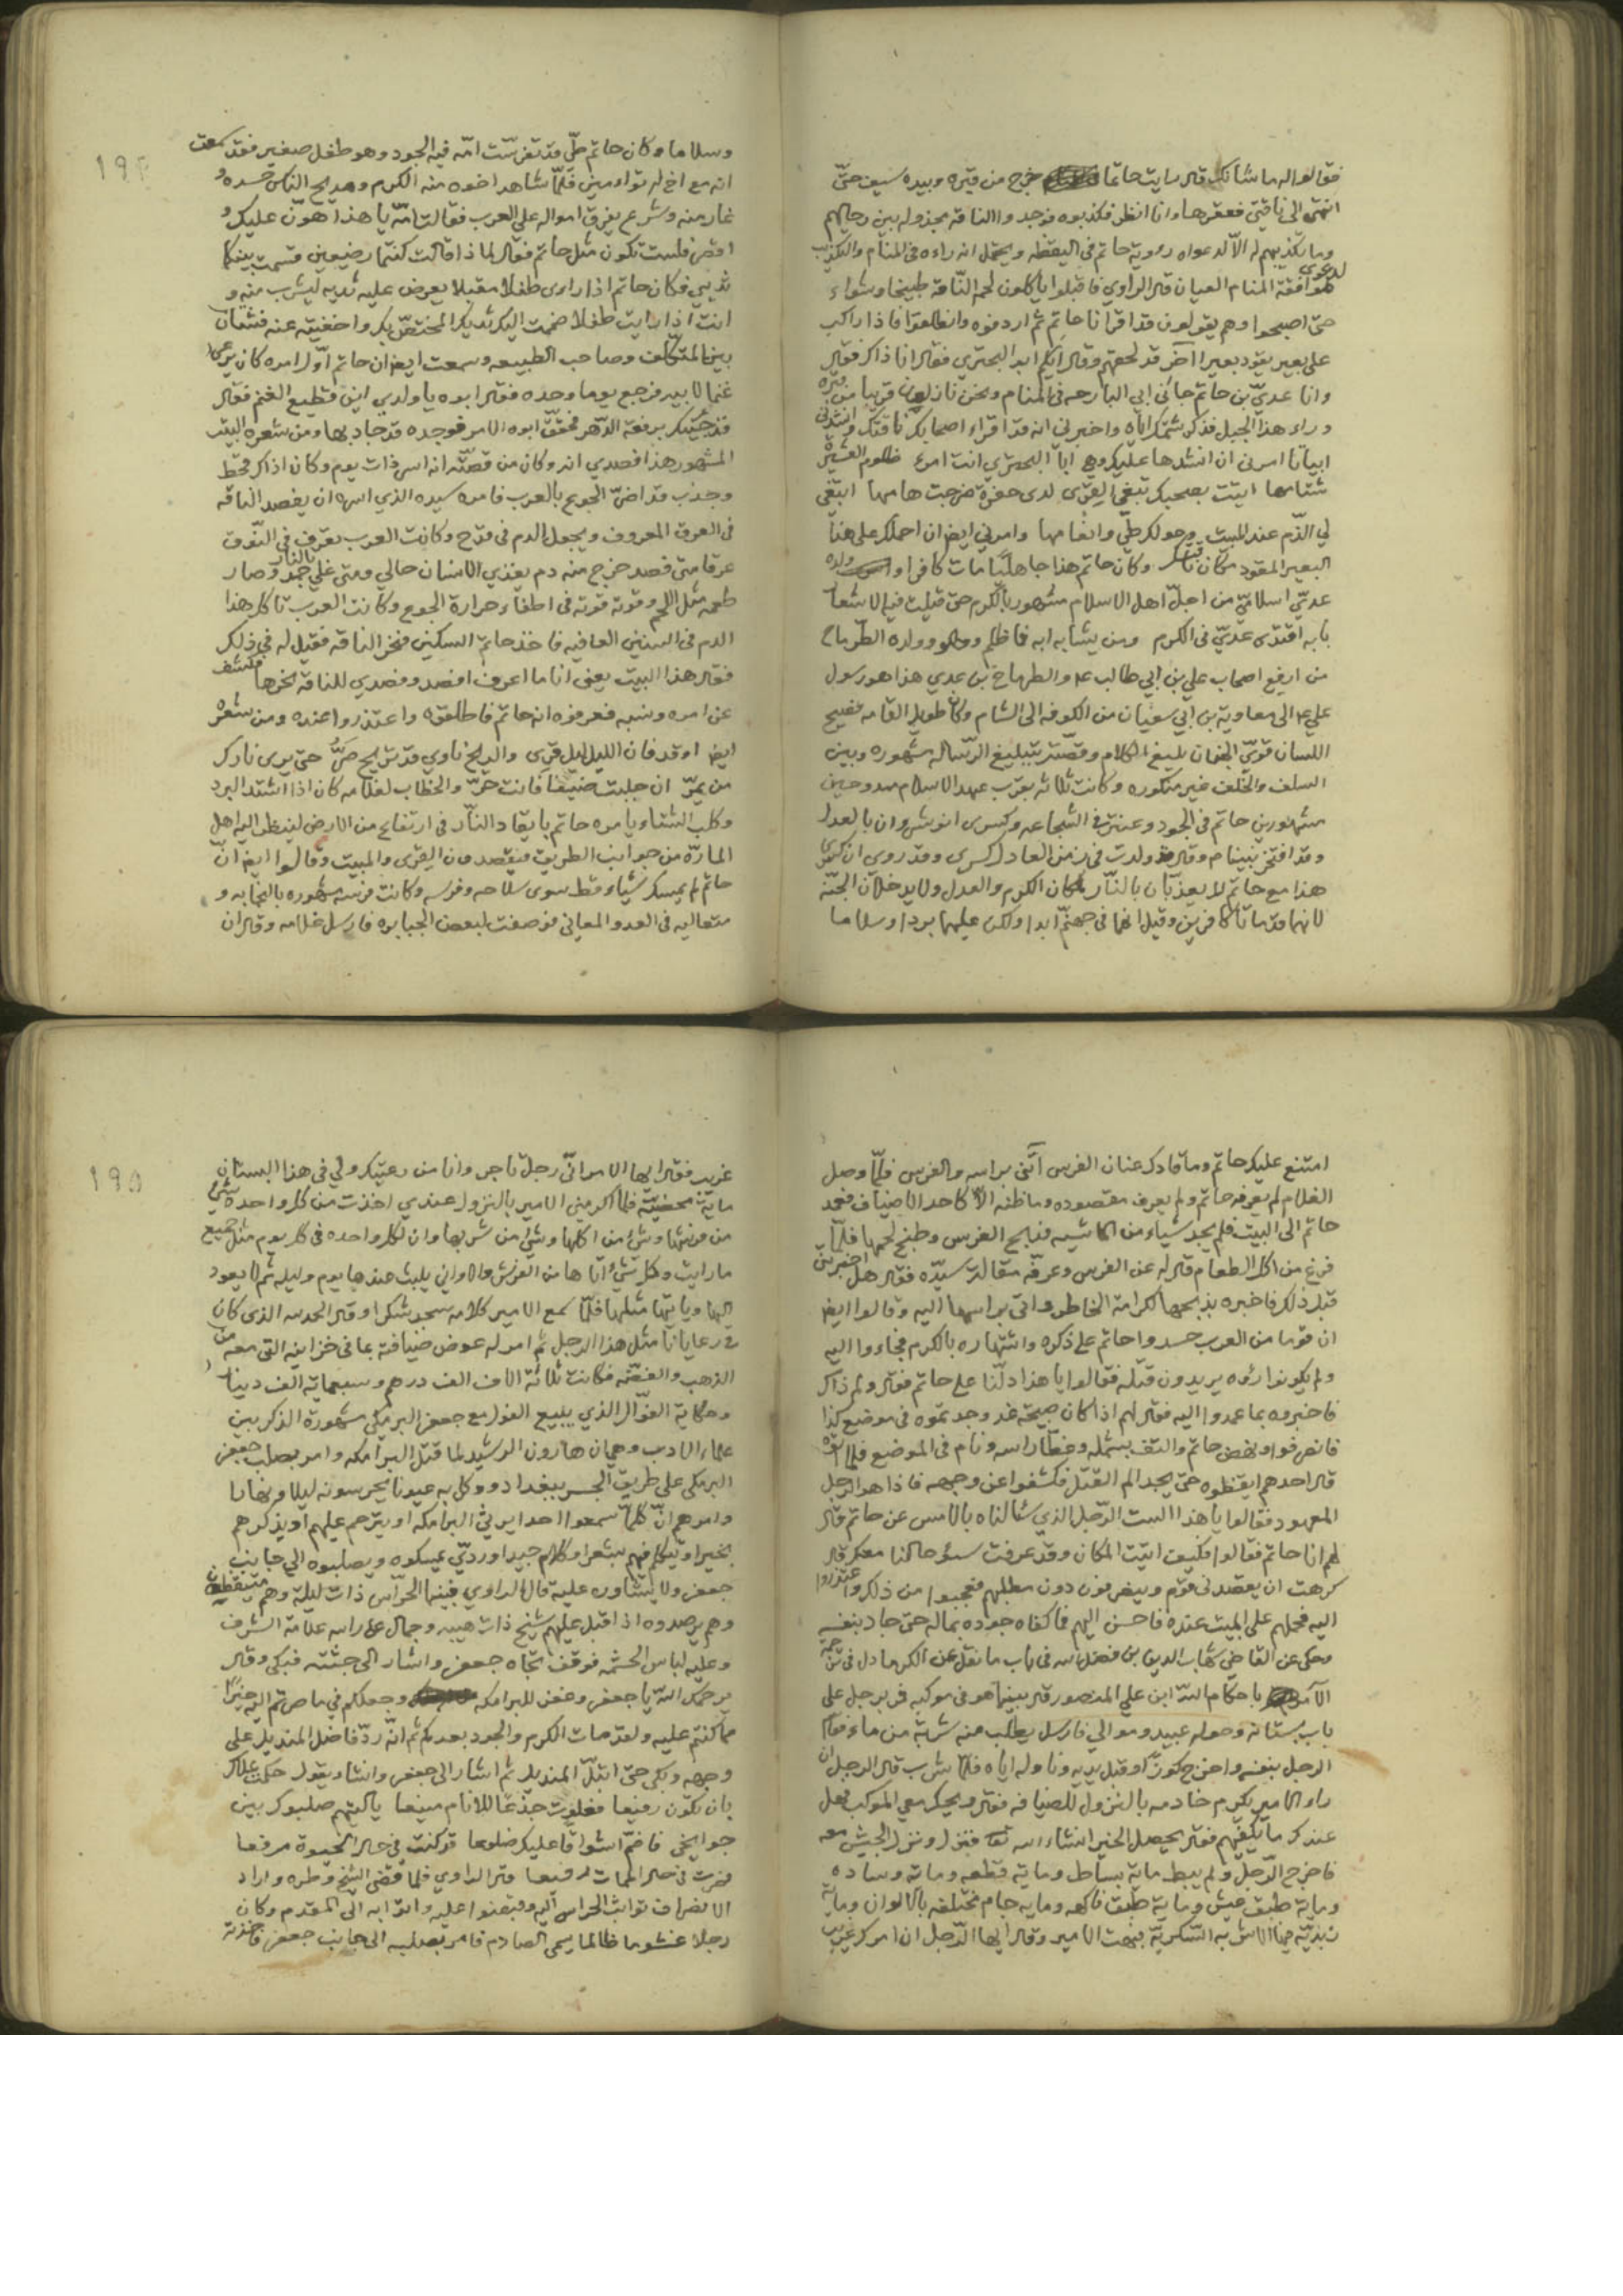 فقالوا له ما شأنك قال رايت حاتما خرج من قبره وبيده سيف حتّى
انتهى الى ناقتي فعقرها وانا انظر فكذبوه فوجدوا الناقة مجذولة بين رحالهم
وما تكذيبهم له الّا لدعواه روية حاتم في اليقظه ويحتمل انه راءه في المنام والتكذيب
لدعوى موافقة المنام العيان قال الراوي فاقبلوا ياكلون لحم النّاقة طبيخا وشواء
حتى اصبحوا وهم يقولون قد اقرانا حاتم ثم اردفوه وانطلقوا فاذا راكب
على بعير يقود بعيرا آخر قد لحقهم وقال ايّكم ابو البحتري فقال انا ذاكر فقال
وانا عديّ بن حاتم جائني ابي البارحه في المنام ونحن نازلون قريبا من قبره
وراء هذا الجبل فذكر شتمك ايّاه واخبرني انه قد اقراء اصحابك ناقتك وانشدني
ابياتا امرني ان انشدها عليك وهي ابا البحتري انت امرء ظلوم العشيرة
شتامها اتيت بصحبك تبغي القرى لدى حفرة هامها ابتغي
لي الذّم عند المبيت وحولك طيّ وانعامها وامرني ايضا ان احملك على هذا
البعير المقود مكان ناقتك وكان حاتم هذا جاهليّا مات كافرا وولده
عديّ اسلاميّ من اجلّ اهل الاسلام مشهور بالكرم حتى قيلت فيه الاشعار
بابه اقتدى عديّ في الكرم ومن يشابه ابه فما ظلم وولده الطّرماح
من ارفع اصحاب علي بن ابي طالب عم والطرماح بن عدي هذا هو رسول
علي عم الى معاوية بن ابي سفيان من الكوفه الى الشام وكان طويل القامه فصيح
اللسان قويّ الجنان بليغ الكلام وقصّته بتبليغ الرّساله مشهوره وبين
السلف والخلف غير منكوره وكانت ثلاثه بقرب عهد الاسلام ممدوحين
مشهورين حاتم في الجود وعنتر في الشجاعه وكسرى انوشيروان بالعدل
وقد افتخر نبيّنا م وقال ولدت في زمن العادل كسرى وقد روي ان كسرى
هذا مع حاتم لا يعذّبان بالنّار لمكان الكرم والعدل ولا يدخلان الجنّه
لانهما قد ماتا كافرين وقيل انهما في جهنّم ابدا ولكن عليهما بردا وسلاما
وسلاما وكان حاتم طيّ قد تفرّست امّه فيه الجود وهو طفل صغير فقد سمعت
انه مع اخ له تواءمين فلمّا شاهد اخوه منه الكرم ومديح الناس حسده و
غار منه وشرع يفرق امواله على العرب فقالت امّه يا هذا هوّن عليك و
اقصر فلست تكون مثل حاتم فقال لماذا قالت كنتما رضيعين قسمت بينكما
ثديي فكان حاتم اذا راى طفلا مقبلا يعرض عليه ثديه ليشرب منه و
انت اذا رايت طفلا ضممت اليك ثديك المختصّ بك واخفيته عنه فشتّان
بين المتكلّف وصاحب الطبيعه وسمعت ايضا ان حاتم اوّل امره كان يرعى
غنما لابيه فرجع يوما وحده فقال ابوه يا ولدي اين قطيع الغنم فقال
قد جئتك برفعة الدّهر فحقّق ابوه الامر فوجده قد جاد بها ومن شعره البيت
المشهور هذا فصدي انه وكان من قصّته انه اسر ذات يوم وكان اذ ذاك قحط
وجذب قد اضرّ الجوع بالعرب فامره سيده الذي اسره ان يفصد الناقه
في العرق المعروف ويجعل الدم في قدح وكانت العرب تعرف في النّوق
عرقا متى فصد خرج منه دم يغذي الانسان حالي ومتى غلي بالنار جمد وصار
طعمه مثل اللحم وقوته قوته في اطفاء حرارة الجوع وكانت العرب تاكل هذا
الدم في السنين العافيه فاخذ حاتم السكين فنحر الناقه فقيل له في ذلك
فقال هذا البيت يعني انا ما اعرف افصد وفصدي للناقة نحرها فكشف
عن امره ونسبه فعرفوه انه حاتم فاطلقوه واعتذروا عنده ومن شعره
ايضا اوقد فان الليل ليل قرى والريح ناوي قد تريح صرّ حتى يرى نارك
من يمرّ ان جلبت ضيفا فانت حرّ والخطاب لغلامه كان اذا اشتد البرد
وكلب الشتاء يامره حاتم بايقاد النّار في ارتفاع من الارض لينظر اليه اهل
المارّة من جوانب الطريق فيقصدون القرى والمبيت وقالوا ايضا انّ
حاتم لم يمسك شياء قط سوى سلاحه وفرسه وكانت فرسه مشهوره بالنجابه و
متعاليه في العدو المعاني فوصفت لبعض الجبابره فارسل غلامه وقال ان
امتنع عليك حاتم وما قادك عنان الفرس آتني براسه والفرس فلمّا وصل
الغلام لم يعرفه حاتم ولم يعرف مقصوده وما ظنه الّا كاحد الاضياف فعمد
حاتم الى البيت فلم يجد شياء من الماشيه فذبح الفرس وطبخ لحمها فلمّا
فرغ من اكل الطعام قال له عن الفرس وعرفه مقالة سيّده فقال هل اخبرتني
قبل ذلك فاخبره بذبحها لكرامة الخاطر واتى براسها اليه وقالوا ايضا
ان قوما من العرب حسدوا حاتم على ذكره واشتهاره بالكرم فجاءوا اليه
ولم يكونوا رؤه يريدون قتله فقالوا يا هذا دلّنا على حاتم فقال ولم ذاك
فاخبروه بما عمدوا اليه فقال لهم اذا كان صبيحة غد وجدتموه في موضع كذا
فانصرفوا ونهض حاتم والتف بشمله وغطّا راسه ونام في الموضع فلما اتوه
قال احدهم ايقظوه حتى يجد الم القتل فكشفوا عن وجهه فاذا هو الرجل
المعهود فقالوا يا هذا الست الرّجل الذي سئالناه بالامس عن حاتم قال
لهم انا حاتم فقالوا فكيف اتيت المكان وقد عرفت سوء حالنا معك قال
كرهت ان يقصدني قوم وينصرفون دون مطلبهم فعجبوا من ذلك واعتذروا
اليه فحملهم على المبيت عنده فاحسن اليهم فما كفاه جوده بماله حتى جاد بنفسه
وحكى عن القاضي شهاب الدين بن فضل الله في باب ما نقل عن الكرماء دل في ترجمة
الآمر باحكام اللّه ابن علي المنصور قال بينما هو في موكبه مر برجل على
باب بستانه وحوله عبيد وموالي فارسل يطلب منه شربة من ماء فقام
الرجل بنفسه واخرج كوزا وقبل يديه وناوله ايّاه فلمّا شرب قال الرجل ان
راء الامير يكرم خادمه بالنزول للضيافه فقال ويحك معي الموكب فهل
عندك ما يكفيهم فقال يحصل الخير انشاء الله تعا فنزل ونزل الجيش معه
فاخرج الرّجل ولم يبط ماية بساط وماية قطعه وماية وساده
وماية طبق عيش وماية طبق فاكهه وماية جام مختلفه بالالوان وماية
زبديّة من الاشربه السّكريّه فبهت الامير وقال ايها الرّجل ان امرك غريب
غريب فقال ايها الامير انّي رجل تاجر وانا من رعيتك ولي في هذا البستان
ماية محضيّة فلما اكرمني الامير بالنزول عندي اخذت من كل واحدة شيئ
من فرشها وشئ من اكلها وشئ من شربها وان لكل واحده في كل يوم مثل جميع
ما رايت وكل شئ اناها من الفرش والاواني يلبث عندها يوم وليله ثم لا يعود
اليها وياتيها مثلها فلمّا سمع الامير كلامه سجد شكرا وقال الحمد لله الذي كان
في رعايانا مثل هذا الرجل ثم امر له عوض ضيافته بما في خزاينه التي معه من
الذهب والفضّه فكانت ثلاثة الاف الف درهم وسبعماية الف دينار
وحكاية الفوّال الذي يبيع الفول مع جعفر البرمكي مشهورة الذكر بين
علماء الادب وهي ان هارون الرشيد لما قتل البرامكه وامر بصلب جعفر
البرمكي على طريق الجسر ببغداد ووكل به عيونا يحرسونه ليلا ونهارا
وامرهم ان كلما سمعوا احدا يرثي البرامكه او يترحم عليهم او يذكرهم
بخير او يتكلم فيهم بشعر او كلام جيد او رديّ يمسكوه ويصلبوه الى جانب
جعفر ولا يشاوره عليه قال الراوي فبينما الحرّاس ذات ليلة وهم متيقظون
وهم يرصدوه اذ اقبل عليهم شيخ ذات هيبه وجمال على راسه علامة الشرف
وعليه لباس الحشمه فوقف تجاه جعفر واشار الى جثته فبكى وقال
يرحمك اللّه يا جعفر وغفر للبرامكه وجعلكم في ما صرتم اليه خيرا
مما كنتم عليه ولقد مات الكرم والجود بعدكم ثم انّه ردّ فاضل المنديل على
وجهه وبكى حتى ابتلّ المنديل ثم اشار الى جعفر وانشاء يقول حكمت علاك
بان تكون رفيعا فعلوت جذعا للانام منيعا يا ليتهم صلبوك بين
جوانحي فاضمّ اشواقا عليك ضلوعا قد كنت في حال الحيوة مرفعا
فصرت في حال الممات رفيعا قال الراوي فلما قضى الشيخ وطره واراد
الانصراف تواثب الحراس اليه وقبضوا عليه واتوا به الى المقدم وكان
رجلا غشوما ظالما يسمى الصادم فامر بصلبه الى جانب جعفر فاخذته